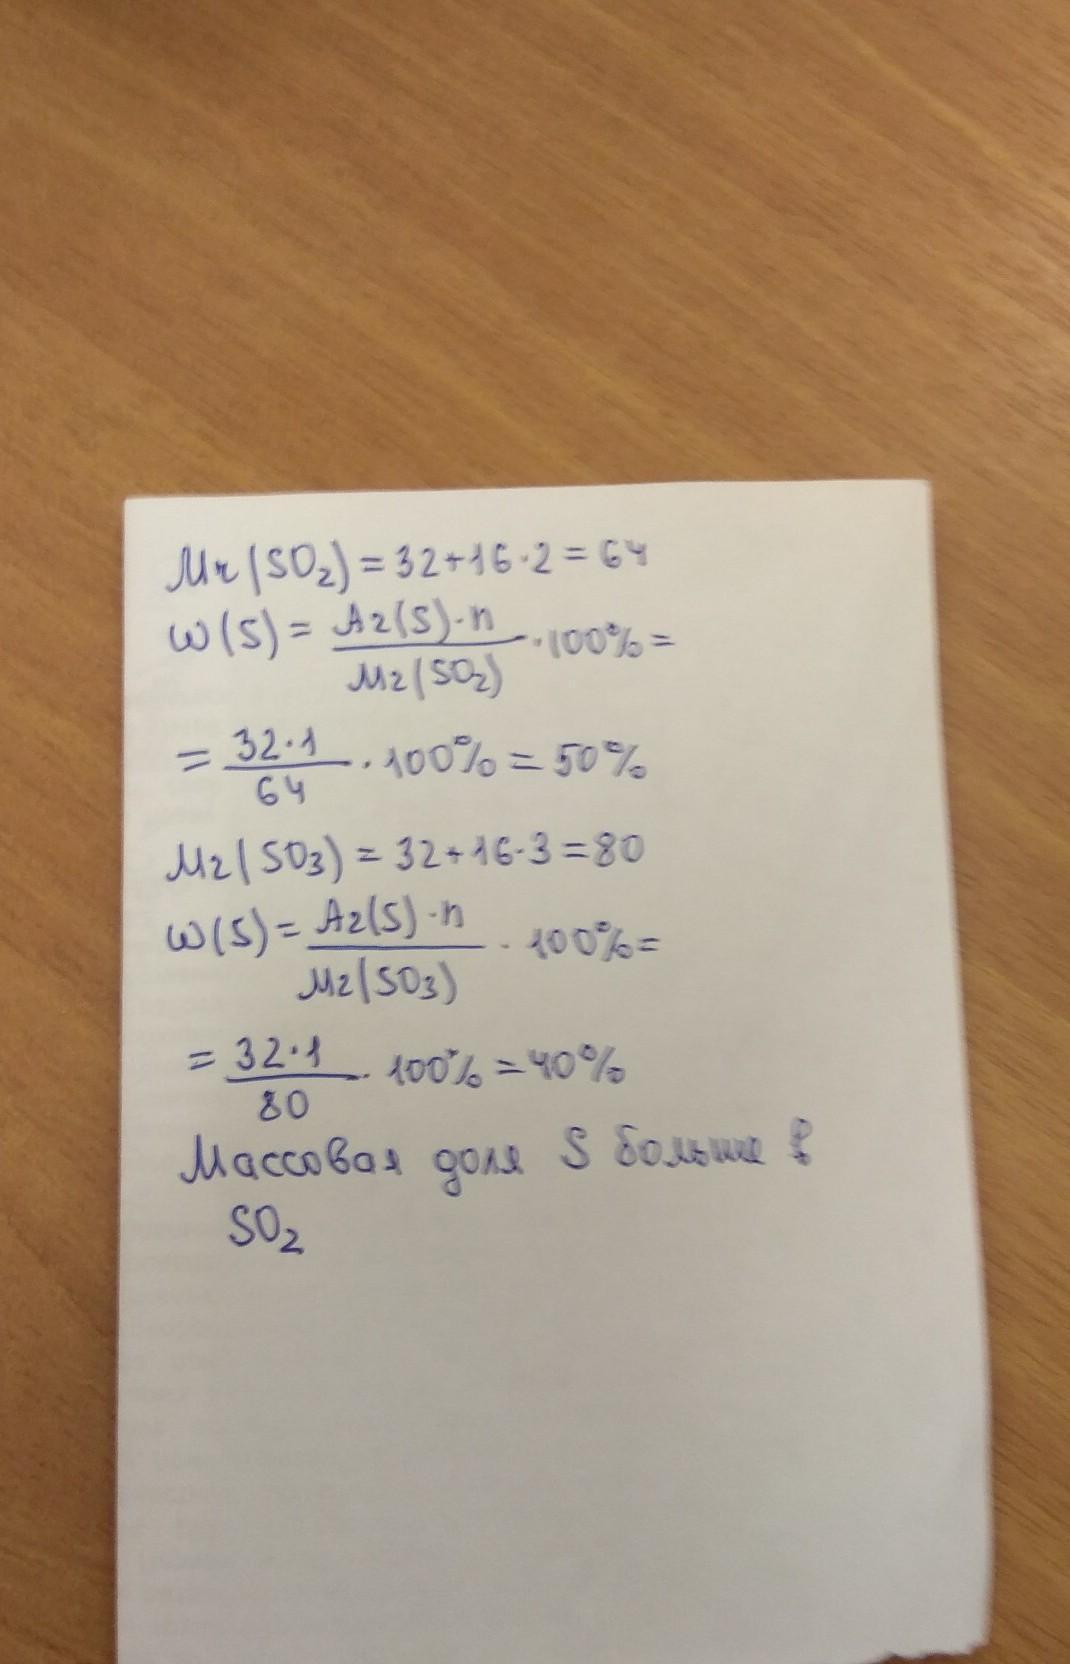 Mr(SO₂) = 32+16·2 = 64
ω(S) = Ar(S)·n / Mr(SO₂) ·100% =
= 32·1 / 64 · 100% = 50%
Mr(SO₃) = 32+16·3 = 80
ω(S) = Ar(S)·n / Mr(SO₃) · 100% =
= 32·1 / 80 · 100% = 40%
Массовая доля S больше в
SO₂